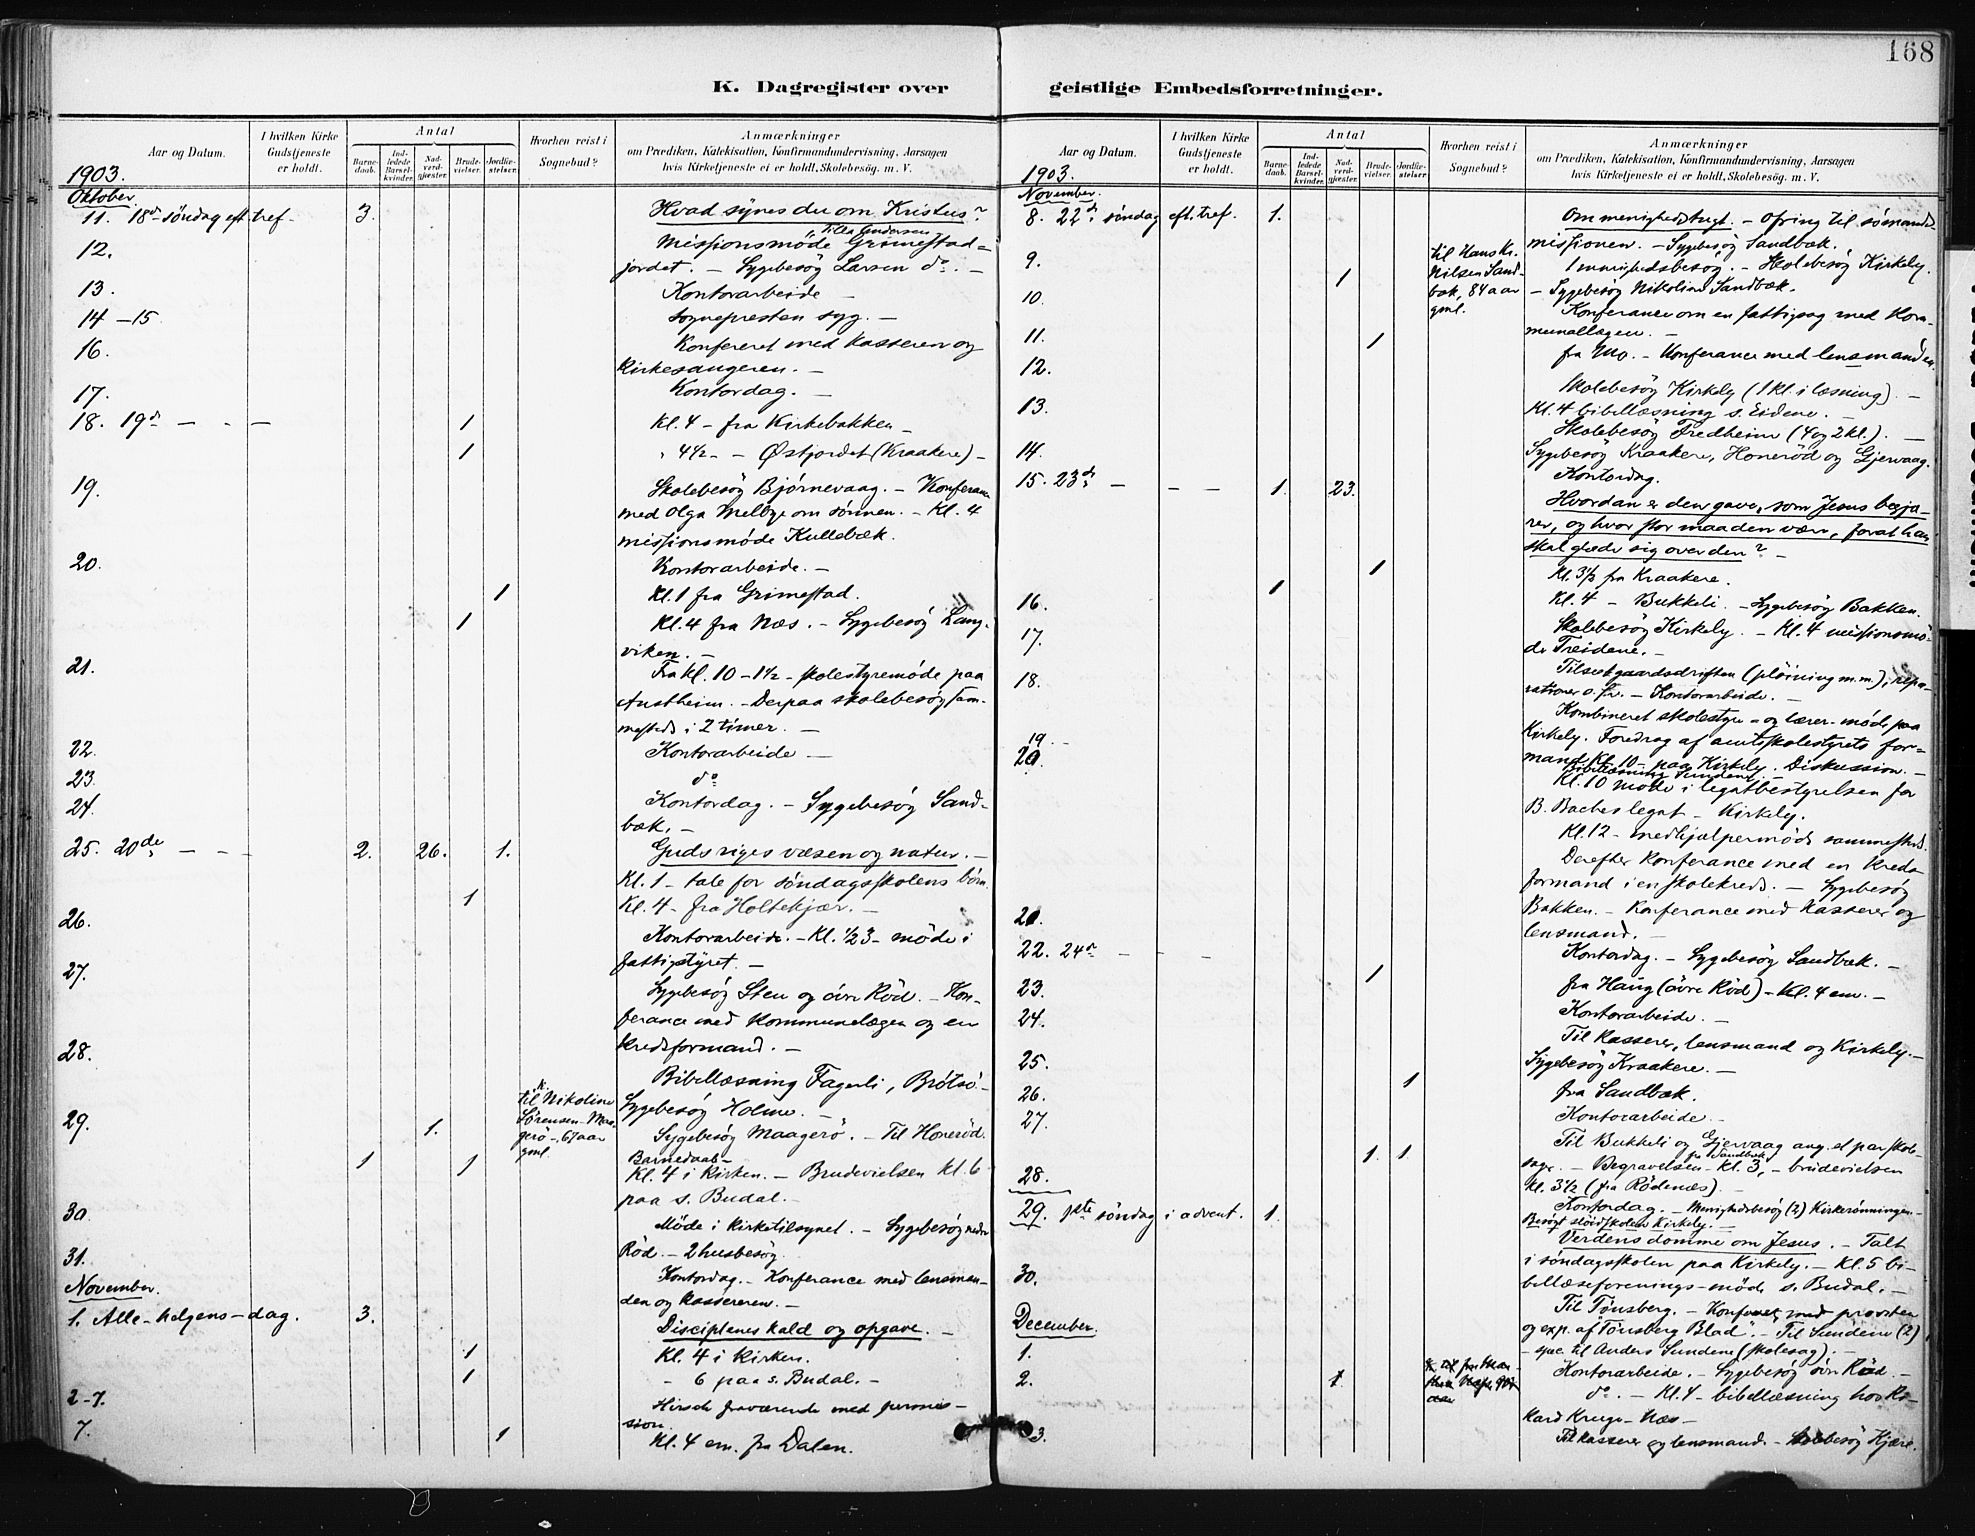 168
K. Dagregister over
geistlige Embedsforretninger.
Aar og Datum.
I hvilken Kirke Gudstjeneste er holdt.
Antal
Barnedaab.
Indledede Barselkvinder.
Nadverdgjæster.
Brudevielser.
Jordfæstelser.
Hvorhen reist i Sognebud?
Anmærkninger
om Prædiken, Katekisation, Konfirmandundervisning, Aarsagen
hvis Kirketjeneste ei er holdt, Skolebesøg. m. V.
1903.
Oktober.
11. 18de søndag eft. tref. 3. Hvad synes du om Kristus?
12. Missionsmøde Grimestad-
jordet. – Sygebesøg Larsen do. –
13. Kontorarbeide –
14–15 Sognepresten syg. –
16. Konfereret med kasseren og
kirkesangeren. –
17. Kontordag. –
18. 19de – – – 1 Kl. 4 – fra Kirkebakken –
1 " 4½ – – Østjordet (Kraakere) –
19. Skolebesøg Bjørnevaag. – Konferance
med Olga Melbye om sønnen. – Kl. 4
missionsmøde Kullebæk.
20. Kontorarbeide. –
1 Kl. 1 fra Grimestad.
1 Kl. 4 fra Næs. – Sygebesøg Lang-
viken. –
21. Fra kl. 10 – 1½ – skolestyremøde paa
Austheim. – Derpaa skolebesøg sam-
mesteds i 2 timer. –
22. Kontorarbeide –
23. do
24. Kontordag. – Sygebesøg Sand-
bæk. –
25. 20de – – – 2. 26. 1. Guds riges væsen og natur. –
Kl. 1 – tale for søndagsskolens børn.
1 Kl. 4 – fra Holtekjær. –
26. Kontorarbeide. – Kl. ½3 – møde i
fattigstyret. –
27. Sygebesøg Sten og øvre Rød. – Kon-
ferance med kommunelægen og en
kredsformand. –
28. Bibellæsning Fagerli, Brøtsø –
Sygebesøg Holme. –
29. 1. til Nikoline
Sørensen Maa-
gerø, 67 aar
gml.
Sygebesøg Maagerø. – Til Honerød.
Barnedaab –
1 1 Kl. 4 i kirken. – Brudevielsen kl. 6
paa s. Budal. –
30. Møde i kirketilsynet. – Sygebesøg nedre
Rød. – 2 husbesøg.
31. Kontordag. – Konferance med lensman-
den og kassereren. –
November.
1. Alle-helgens-dag. 3. Disciplenes kald og opgave. –
1 Kl. 4 i kirken.
1 – 6 paa s. Budal. –
2–7. Hirsch fraværende med permis-
sion
7. 1 Kl. 4 em. fra Dalen.
Aar og Datum.
I hvilken Kirke Gudstjeneste er holdt.
Antal
Barnedaab.
Indledede Barselkvinder.
Nadverdgjæster.
Brudevielser.
Jordfæstelser.
Hvorhen reist i Sognebud?
Anmærkninger
om Prædiken, Katekisation, Konfirmandundervisning, Aarsagen
hvis Kirketjeneste ei er holdt, Skolebesøg. m. V.
1903.
November.
8. 22de søndag eft. tref. 1. Om menighedstugt. – Ofring til sømands-
missionen. – Sygebesøg Sandbæk.
9. 1 til Hans Kr.
Nilsen Sand-
bæk, 84 aar
gml.
1 menighedsbesøg. – Skolebesøg Kirkely.
– Sygebesøg Nikoline Sandbæk.
10. Konferance om en fattigsag med kom-
munallægen. –
11. 1 fra Mo. – Konferance med lensmanden.
12. Skolebesøg Kirkely (1 kl. i læsning). –
Kl. 4 bibellæsning s. Eidene. –
13. Skolebesøg Fredheim (4 og 2 kl.). –
Sygebesøg Kraakere, Honerød og Gjervaag.
14. Kontordag.
15. 23de – – – 1. 23. Hvordan er den gave, som Jesus begjæ-
rer, og hvor stor maa den være, forat han
skal glæde sig over den? –
1 Kl. 3½ fra Kraakere.
1 Kl. 4 – Bukkeli. – Sygebesøg Bakken.
16. Skolebesøg Kirkely. – Kl. 4 missionsmø-
de Treidene. –
17. Tilseet gaardsdriften (pløining m.m.), repa-
rationer o. l. – Kontorarbeide. –
18. Kombineret skolestyre- og lærer-møde paa
Kirkely. Foredrag af amtsskolestyrets for-
mand Kl. 10 – paa Kirkely. Diskussion. –
19. Bibellæsning Sundene –
20. Kl. 10 møde i legatbestyrelsen for
B. Baches legat – Kirkely.
Kl. 12 – medhjælpermøde sammesteds.
Derefter konferance med en kreds-
formand i en skolekreds. – Sygebesøg
Bakken. – Konferance med kasserer og
lensmand. –
21. Kontordag. – Sygebesøg Sandbæk. –
22. 24de – – – 1 fra Haug (øvre Rød) – Kl. 4 em. –
23. Kontorarbeide. –
24. Til kasserer, lensmand og Kirkely. –
Sygebesøg Kraakere. –
25. 1 fra Sandbæk.
26. Kontorarbeide. –
27. Til Bukkeli og Gjervaag ang. et par skole-
sager. – Begravelsen fra Sandbæk – kl. 3, – brudevielsen
1 1 kl. 3½ (fra Rødenæs). –
28. Kontordag. – Menighedsbesøg (2) Kirkerønningen. –
Besøgt sløidskolen Kirkely. –
29. 1ste søndag i advent. 1. Verdens domme om Jesus. – Talt
i søndagsskolen paa Kirkely. – Kl. 5 bi-
bellæseforenings-møde s. Budal. –
30. Til Tønsberg. – Konferance med provsten
og exp. af "Tønsberg Blad". – Til Sundene (2)
– spec. til Anders Sundene (skolesag). –
December.
1. Kontorarbeide. – Sygebesøg øvre Rød. –
2. 1 do. – Kl. 4 – bibellæsning hos Ri-
kard Kruge – Næs –
3. Til kasserer og lensmand. – Skolebesøg Kjære.